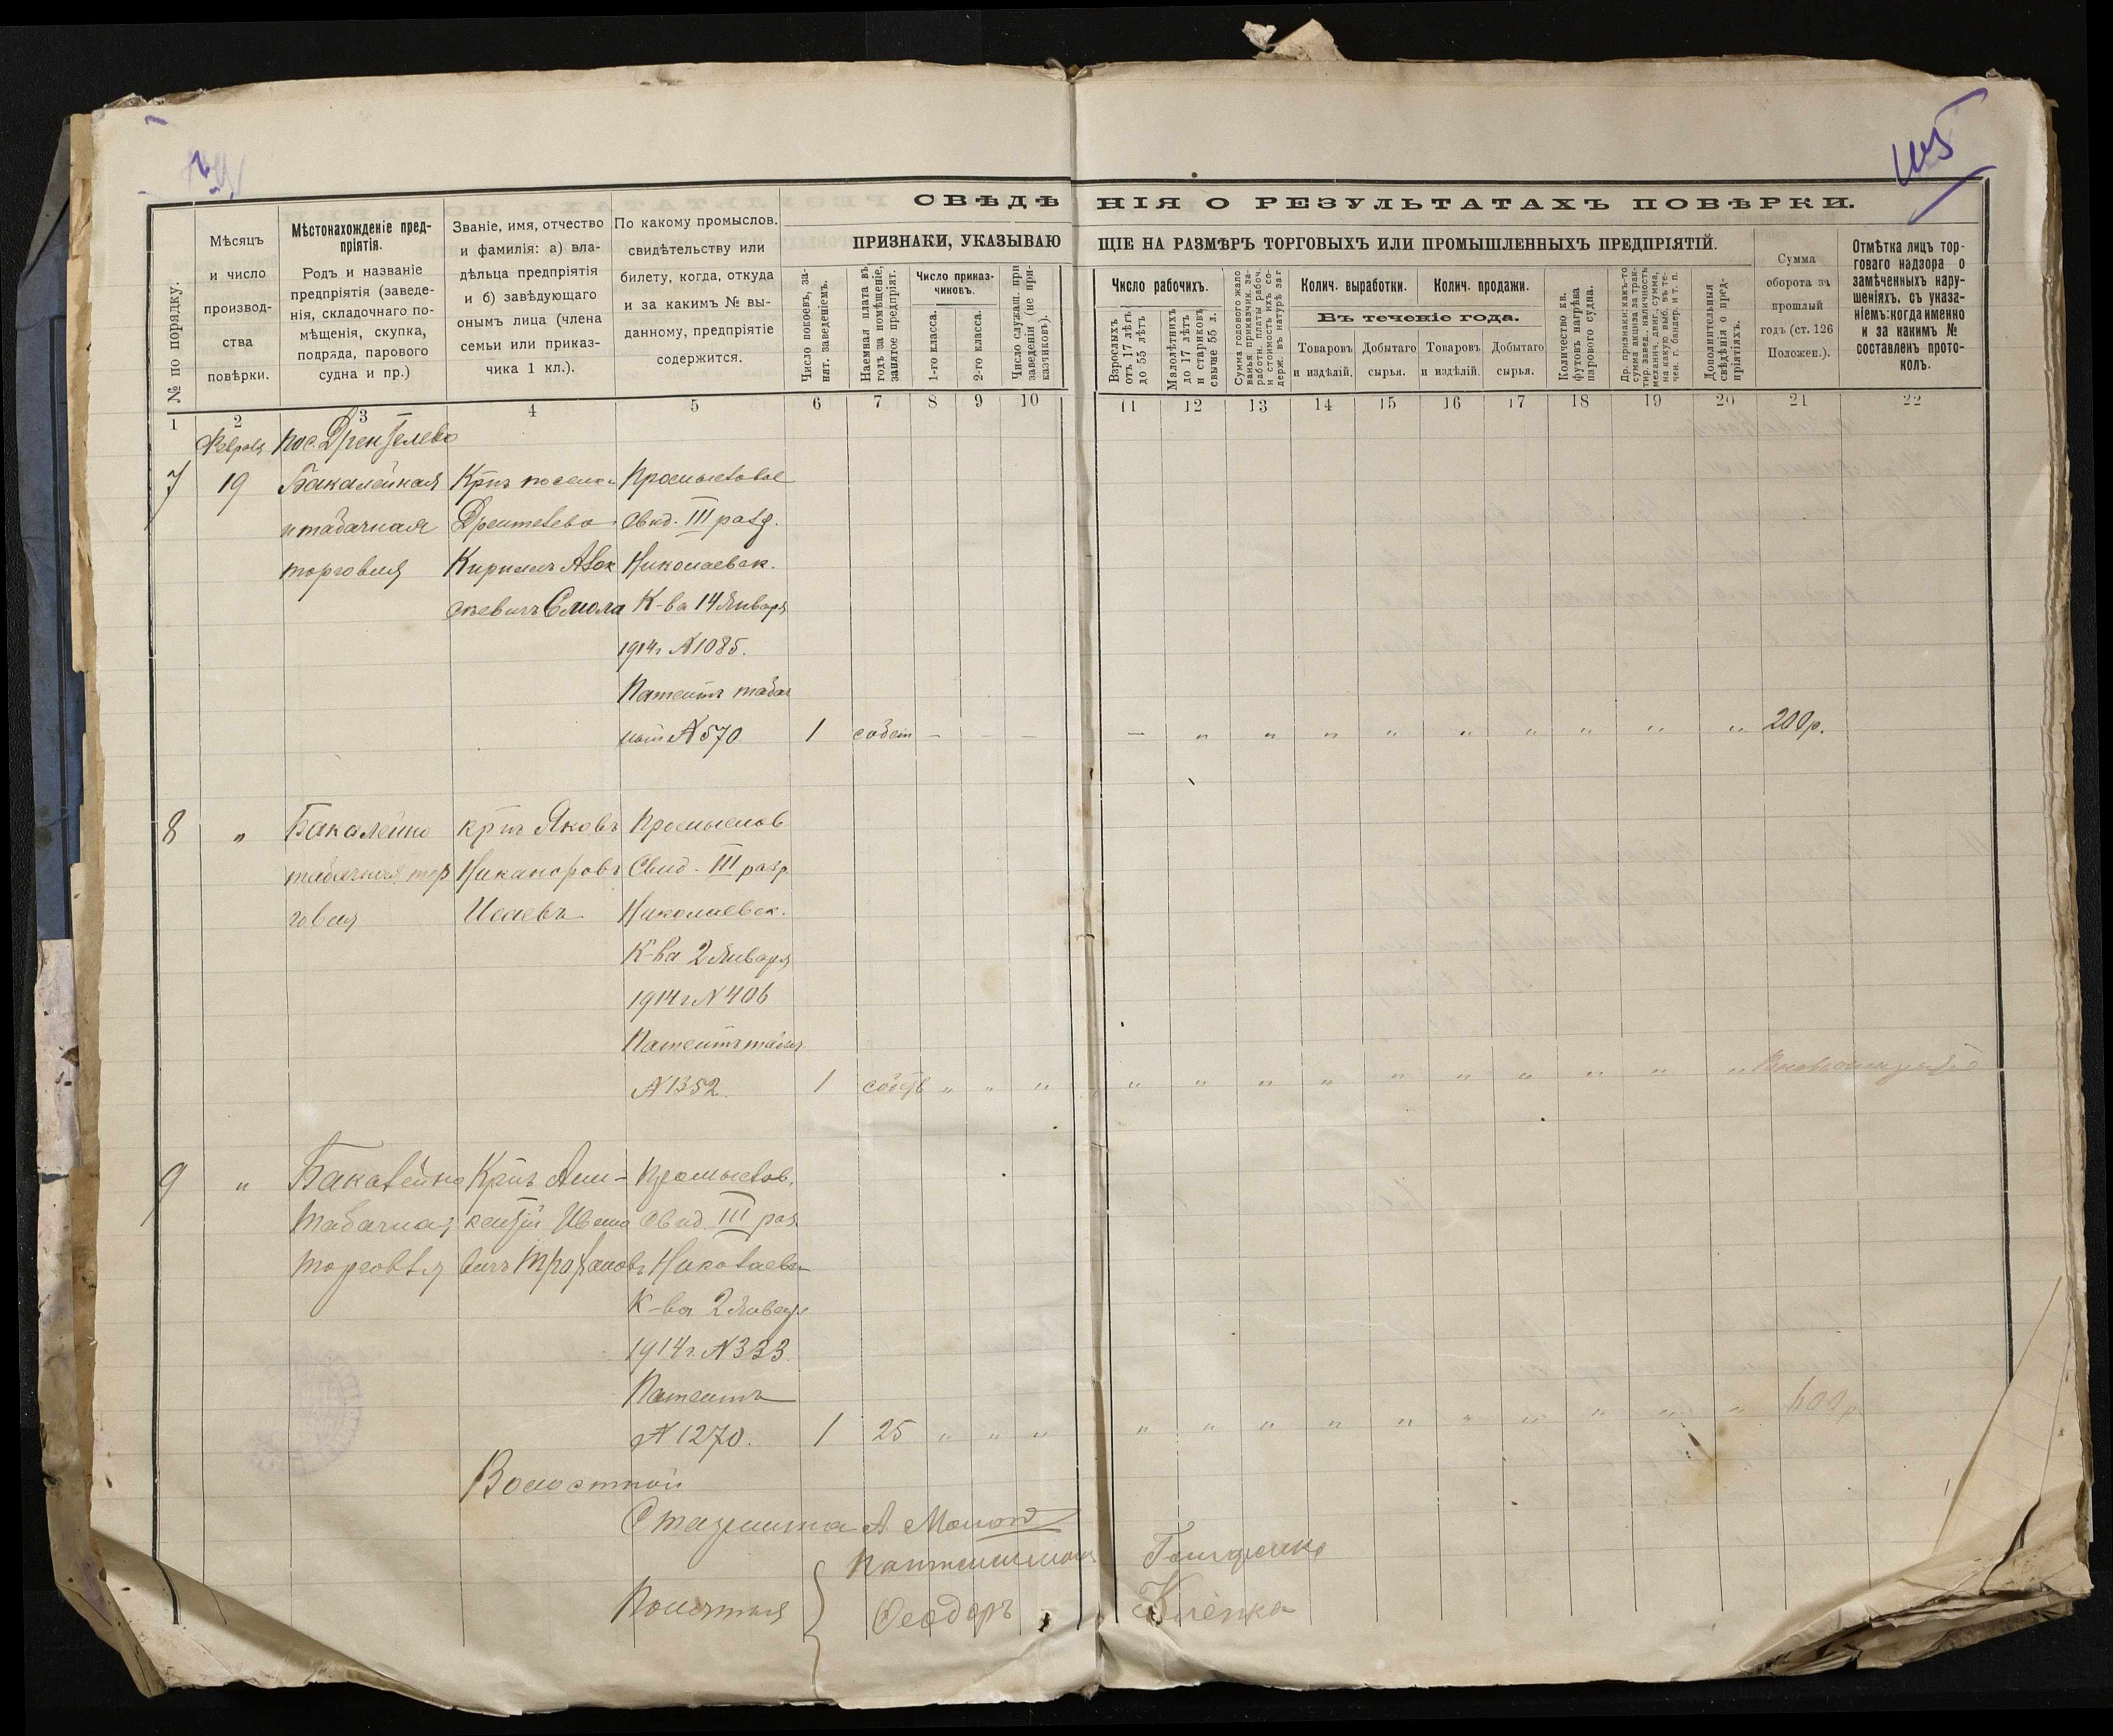 105
СВѢДѢНІЯ О РЕЗУЛЬТАТАХЪ ПОВѢРКИ.
ПРИЗНАКИ, УКАЗЫВАЮЩІЕ НА РАЗМѢРЪ ТОРГОВЫХЪ ИЛИ ПРОМЫШЛЕННЫХЪ ПРЕДПРІЯТІЙ.
№ по порядку.
Мѣсяцъ
и число
производ-
ства
повѣрки.
Мѣстонахожденіе пред-
пріятія.
Родъ и названіе
предпріятія (заведе-
нія, складочнаго по-
мѣщенія, скупка,
подряда, парового
судна и пр.)
Званіе, имя, отчество
и фамилія: а) вла-
дѣльца предпріятія
и б) завѣдующаго
онымъ лица (члена
семьи или приказ-
чика 1 кл.).
По какому промыслов.
свидѣтельству или
билету, когда, откуда
и за какимъ № вы-
данному, предпріятіе
содержится.
Число покоевъ, за-
нят. заведеніемъ.
Наемная плата въ
годъ за помѣщеніе,
занятое предпріят.
Число приказ-
чиковъ.
1-го класса.
2-го класса.
Число служащ. при
заведеніи (не при-
казчиковъ).
Число рабочихъ.
Взрослыхъ
отъ 17 лѣтъ
до 55 лѣтъ
Малолѣтнихъ
до 17 лѣтъ
и стариковъ
свыше 55 л.
Сумма годового жало
ванья приказчик. за-
работн. платы рабоч.
и стоимость ихъ со-
держ. въ натурѣ за г
Колич. выработки.
Колич. продажи.
Въ теченіе года.
Товаровъ
и издѣлій.
Добытаго
сырья.
Товаровъ
и издѣлій.
Добытаго
сырья.
Количество кв.
футовъ нагрѣва
парового судна.
Др. признаки: какъ-то
сумма акциза за трак-
тир. завед., наличность
механич. двиг. сумма,
на какую выб. въ те-
чен. г. бандер. и т. п.
Дополнительныя
свѣдѣнія о пред-
пріятіяхъ.
Сумма
оборота за
прошлый
годъ (ст. 126
Положен.).
Отмѣтка лицъ тор-
говаго надзора о
замѣченныхъ нару-
шеніяхъ, съ указа-
ніемъ: когда именно
и за какимъ №
составленъ прото-
колъ.
1 2 3 4 5 6 7 8 9 10 11 12 13 14 15 16 17 18 19 20 21 22
Февраля пос. Дрентелево
7 19 Бакалейная Крнъ поселка Промысловое
и табачная Дрентелево Свид. III разр.
торговля Кирилъ Николаевск.
Смола К-ва 14 Января
1914 г №1085.
Патентъ табач
ный №570. 1 собст — — — — „ „ „ „ „ „ „ „ „ 200 р.
8 „ Бакалейно крнъ Яковъ Промыслов
табачная тор Никаноровъ Свид. III разр
говля Исаевъ Николаевск.
К-ва 2 Января
1914 г №406
Патентъ табач
№1352. 1 собств „ „ „ „ „ „ „ „ „ „ „ „ „
9 „ Бакалейно Крнъ Ани- Промыслов.
табачная Ивано Свид. III раз.
торговля вичъ Николаевск
К-ва 2 Января
1914 г. №333.
Патентъ
№1270. 1 25 „ „ „ „ „ „ „ „ „ „ „ „ „ 600 р.
Волостной
Старшина А
Понятыя
Феодоръ